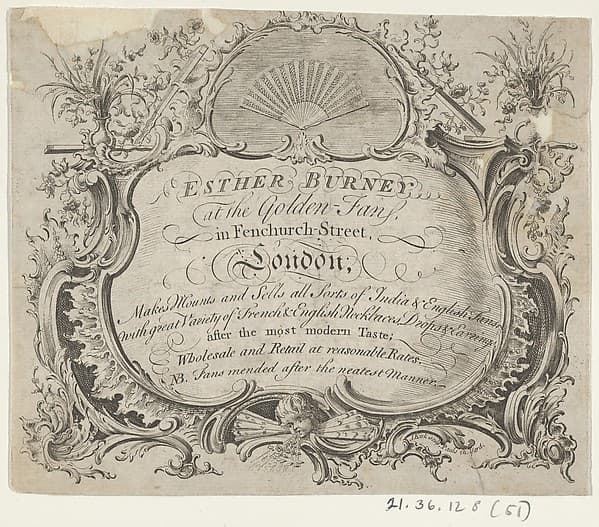 ESTHER BURNEY
at the Golden-Fan,
in Fenchurch-Street,
London,
Makes Mounts and Sells all Sorts of India & English Fans
with great Variety of French & English Necklaces, Drops & Earrings
after the most modern Taste;
Wholesale and Retail at reasonable Rates.
NB. Fans mended after the neatest Manner.
21.36.128 (51)